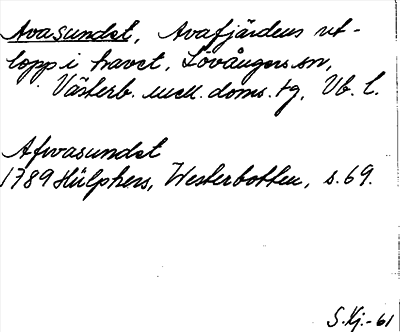 Avasundet, Avafjärdens ut-
lopp i havet, Lövångers sn,
Västerb. mell. doms. tg, Vb. l.
Afwasundet
1789 Hülphers, Westerbotten, s. 69.
S. Kj. -61